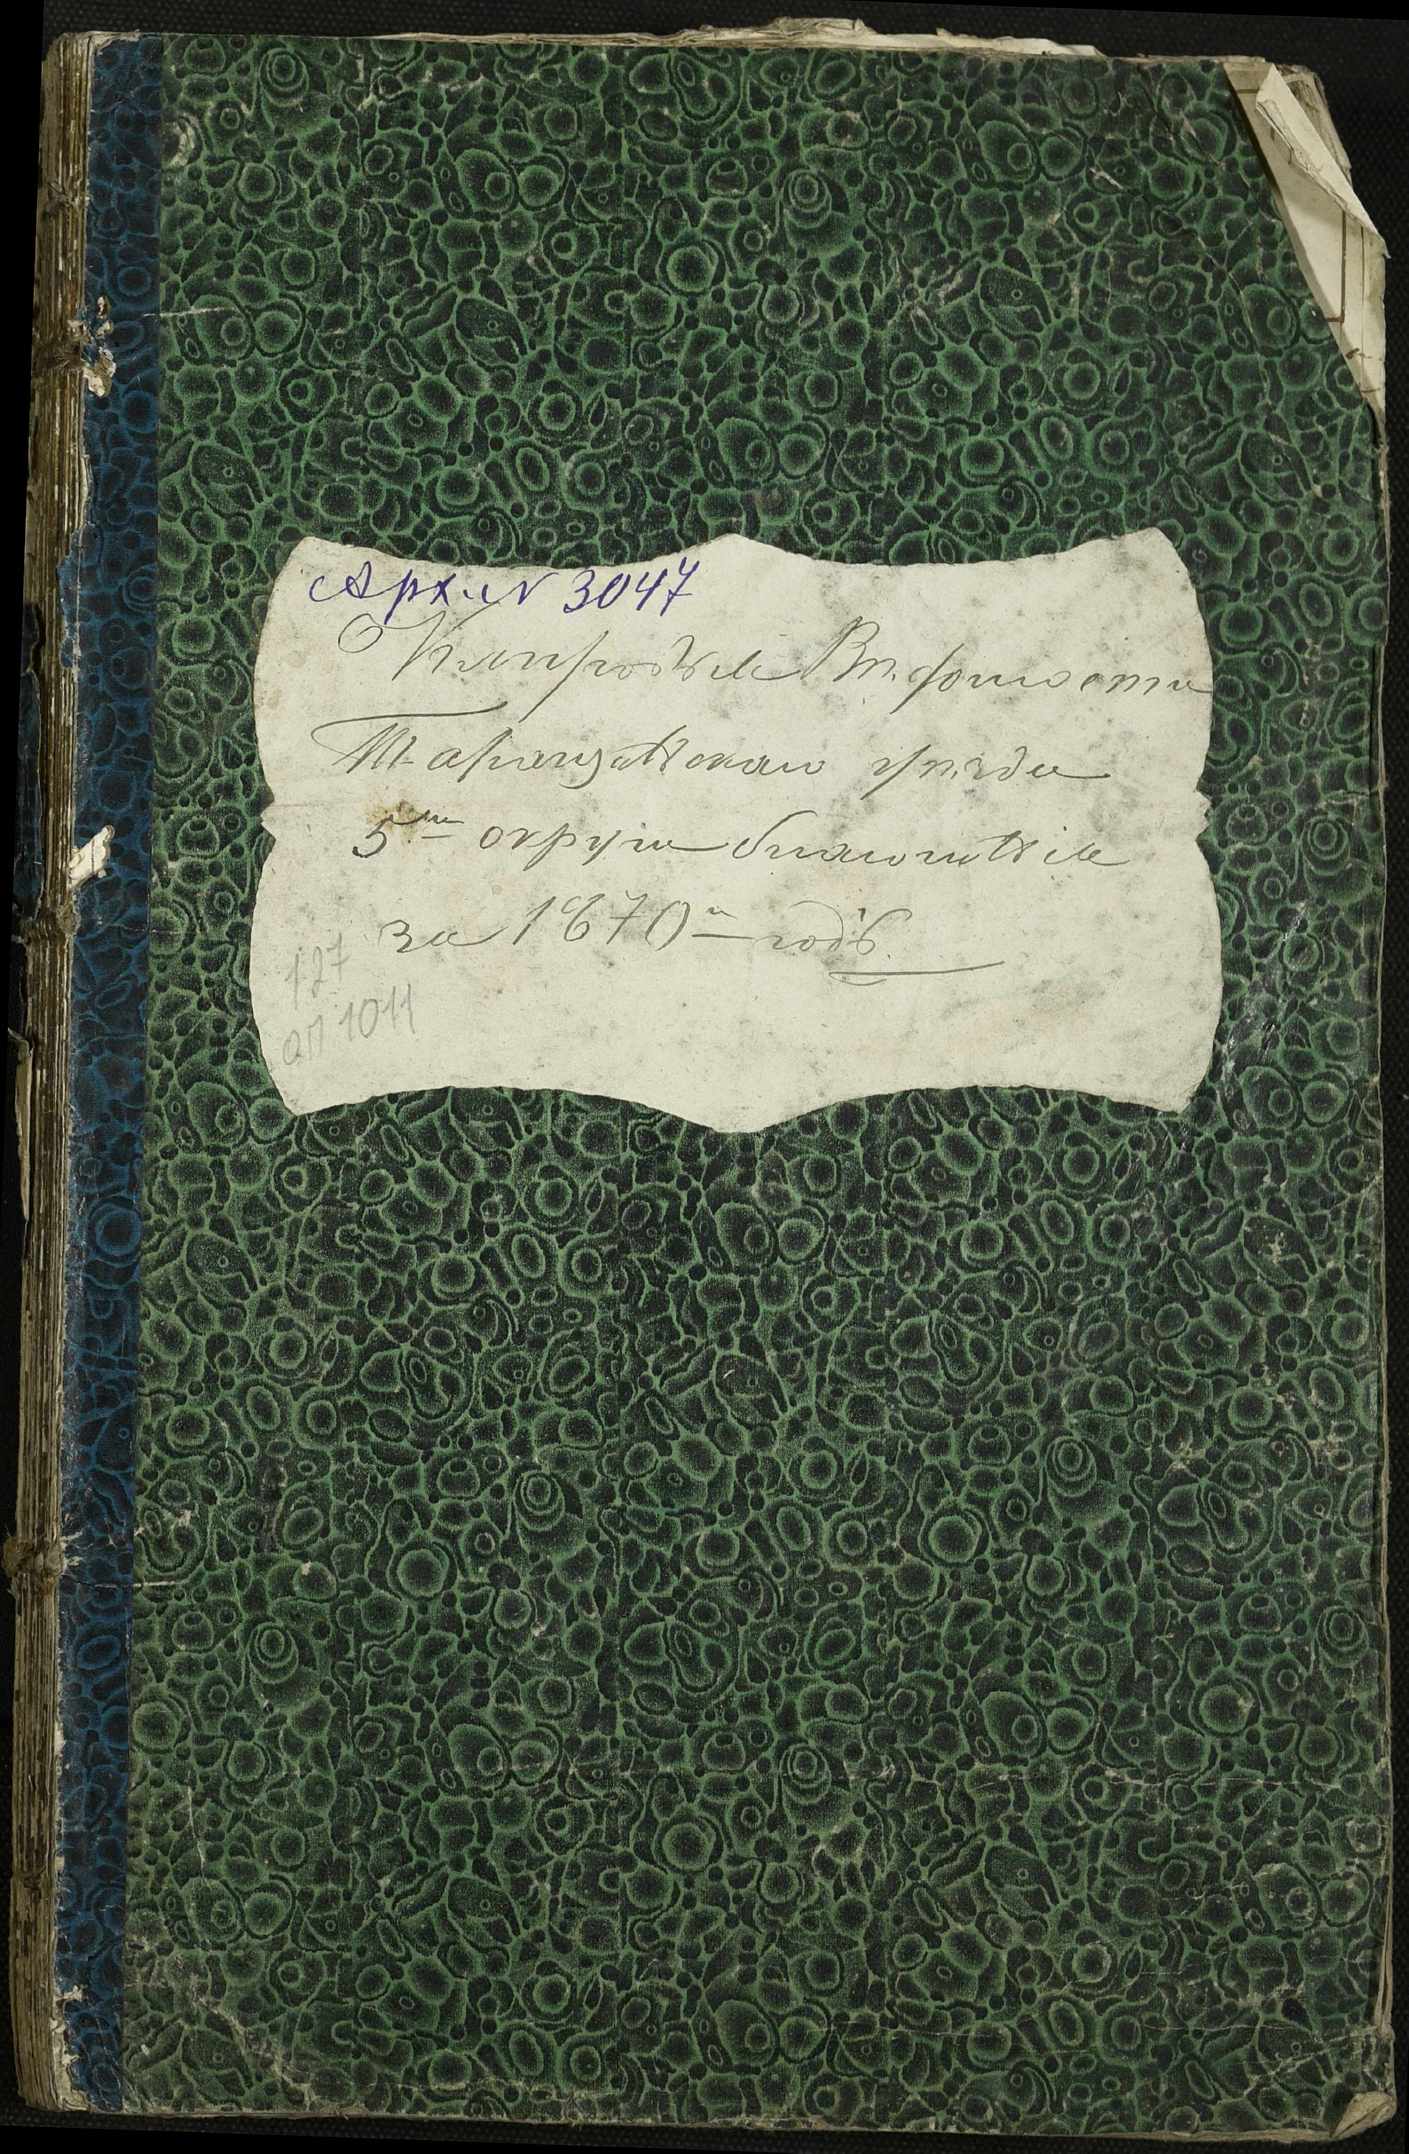 Арх. N 3047
Клировыя Вѣдомости
Таращанскаго уѣзда
5го округа благочинія
за 1870й годъ.
127
оп 1011